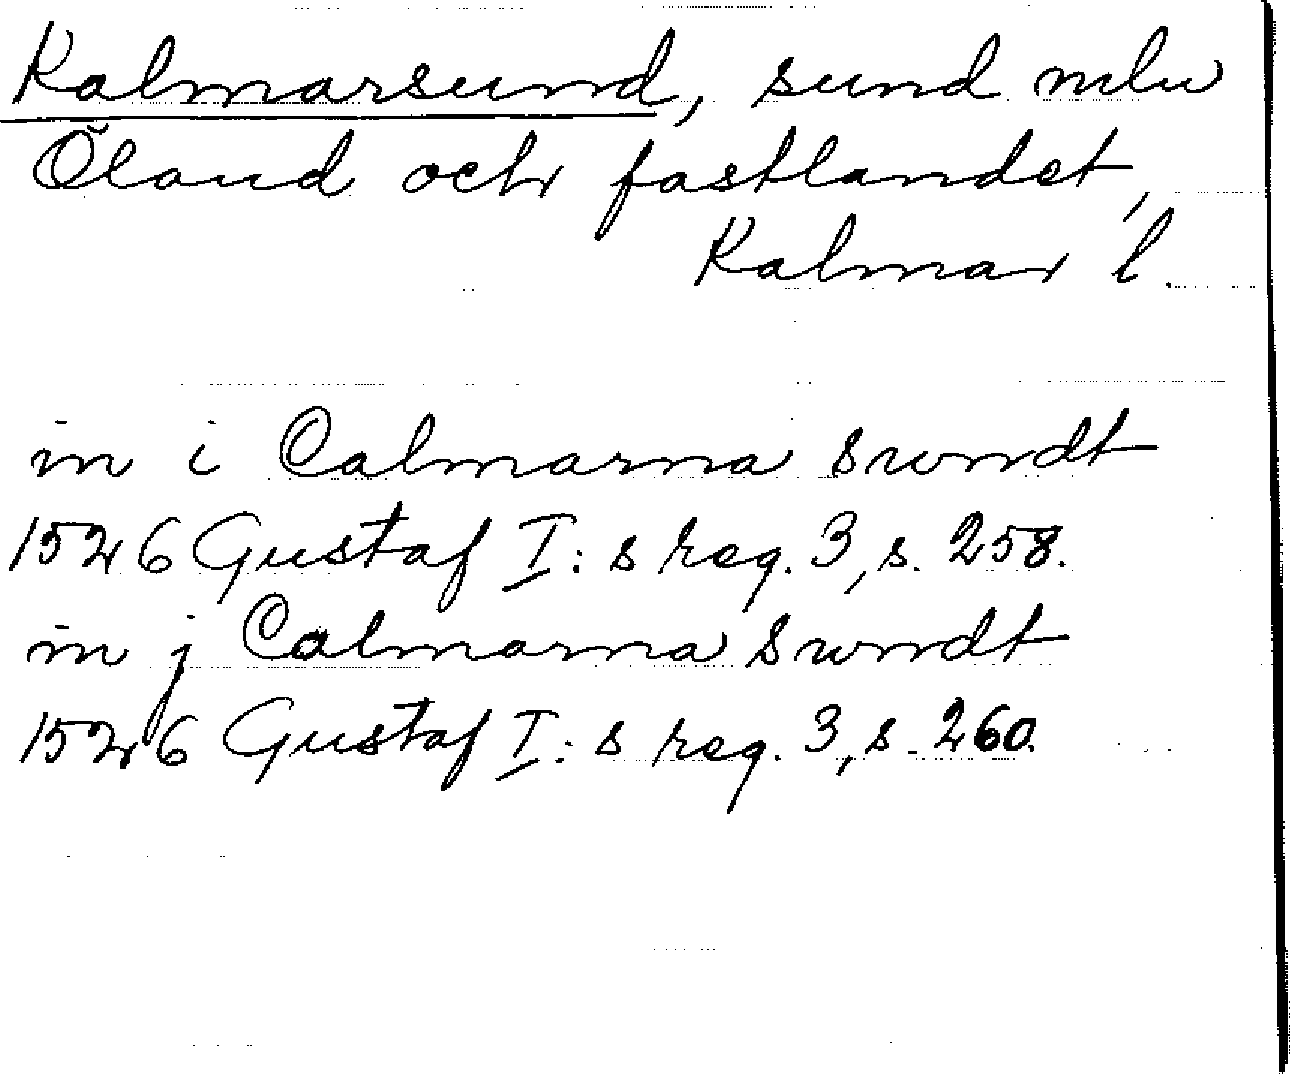 Kalmarsund, sund mlu
Öland och fastlandet,
Kalmar l.
in i Calmarna swndt
1526 Gustaf I:s reg. 3, s. 258.
in j Calmarna swndt
1526 Gustaf I:s reg. 3, s. 260.